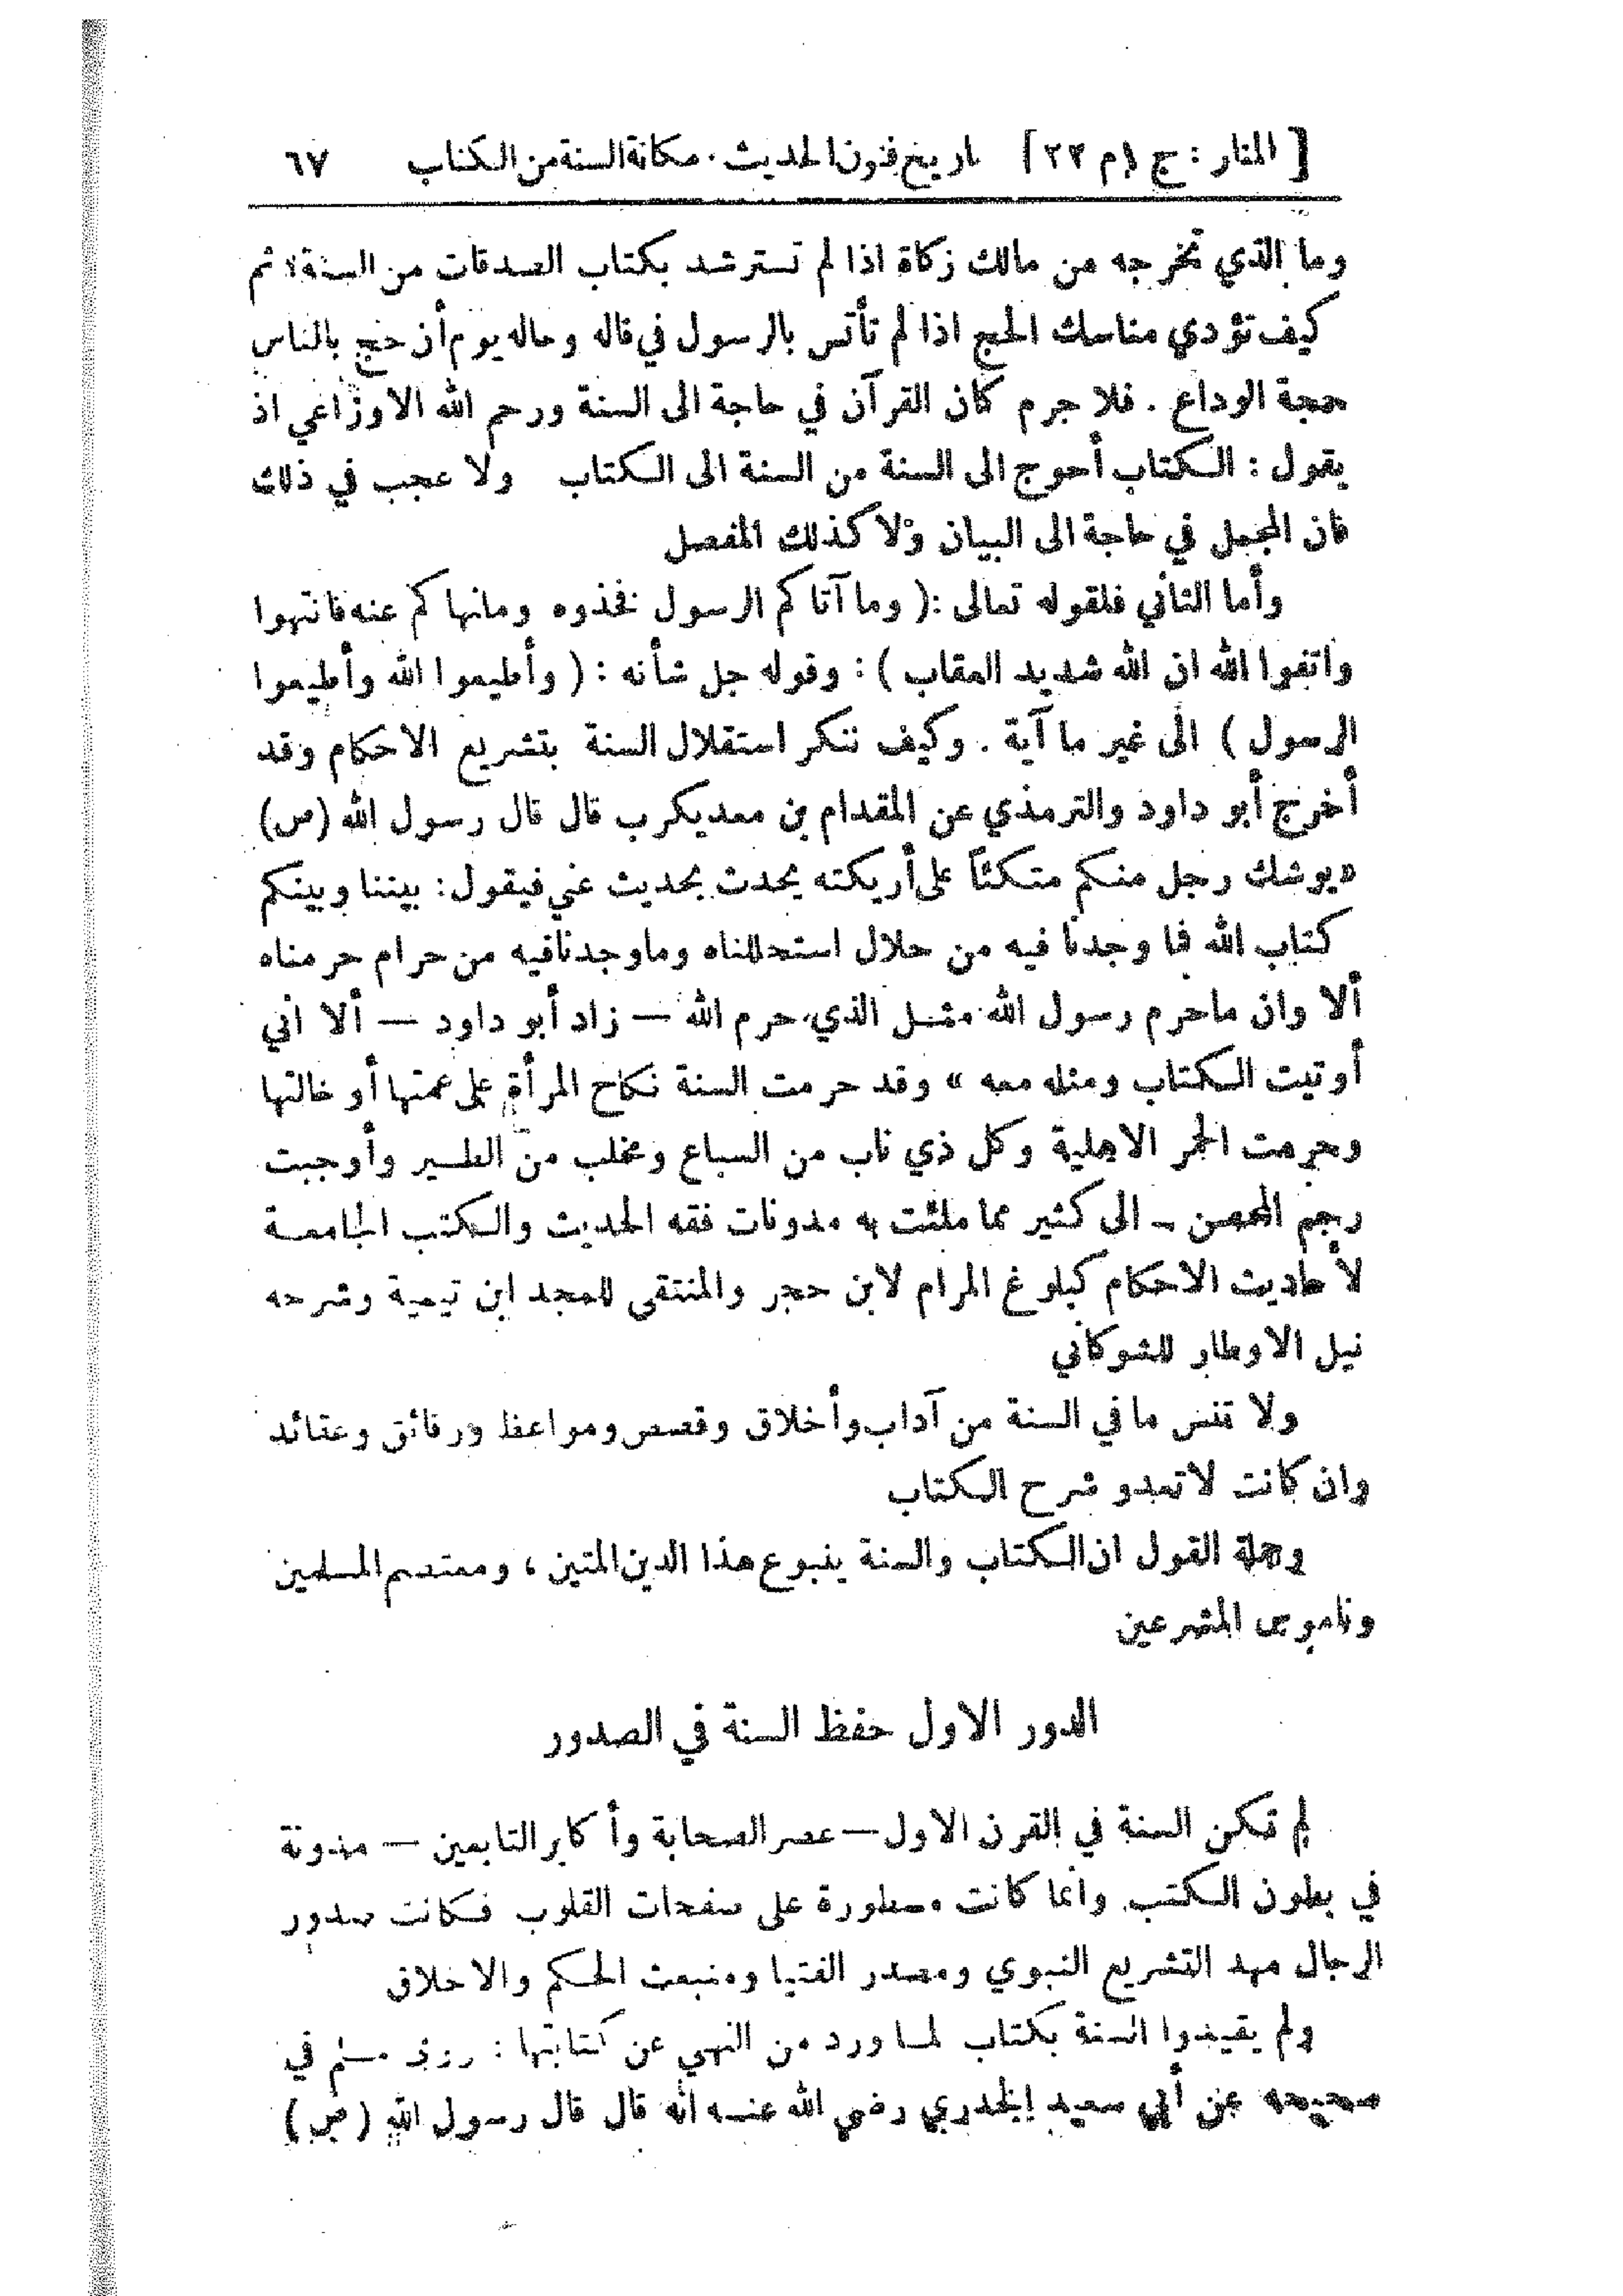 [ المنار : ج ١ م ٢٢ ] تاريخ فنون الحديث . مكانة السنة من الكتاب ٦٧
وما الذي تخرجه من مالك زكاة اذا لم تسترشد بكتاب الصدقات من السنة؟ ثم
كيف تؤدي مناسك الحج اذا لم تأتس بالرسول في قاله وحاله يوم أن حج بالناس
حجة الوداع . فلا جرم كان القرآن في حاجة الى السنة ورحم الله الاوزاعي اذ
يقول : الكتاب أحوج الى السنة من السنة الى الكتاب ولا عجب في ذلك
فان المجمل في حاجة الى البيان ولا كذلك المفصل
وأما الثاني فلقوله تعالى :( وما آتاكم الرسول فخذوه ومانهاكم عنه فانتهوا
واتقوا الله ان الله شديد العقاب ) : وقوله جل شأنه : ( وأطيعوا الله وأطيعوا
الرسول ) الى غير ما آية . وكيف ننكر استقلال السنة بتشريع الاحكام وقد
أخرج أبو داود والترمذي عن المقدام بن معديكرب قال قال رسول الله (ص)
«يوشك رجل منكم متكئاً على أريكته يحدث بحديث عني فيقول: بيننا وبينكم
كتاب الله فما وجدنا فيه من حلال استحللناه وماوجدنافيه من حرام حرمناه
ألا وان ماحرم رسول الله مثل الذي حرم الله — زاد أبو داود — ألا اني
أوتيت الكتاب ومثله معه » وقد حرمت السنة نكاح المرأة على عمتها أو خالتها
وحرمت الحمر الاهلية وكل ذي ناب من السباع ومخلب من الطير وأوجبت
رجم المحصن – الى كثير مما ملئت به مدونات فقه الحديث والكتب الجامعة
لأحاديث الاحكام كبلوغ المرام لابن حجر والمنتقى للمجد ابن تيمية وشرحه
نيل الاوطار للشوكاني
ولا تنس ما في السنة من آداب وأخلاق وقصص ومواعظ ورقائق وعقائد
وان كانت لاتعدو شرح الكتاب
وجملة القول ان الكتاب والسنة ينبوع هذا الدين المتين ، ومعتصم المسلمين
وناموس المشرعين
الدور الاول حفظ السنة في الصدور
لم تكن السنة في القرن الاول — عصر الصحابة وأكابر التابعين — مدونة
في بطون الكتب وانما كانت مسطورة على صفحات القلوب فكانت صدور
الرجال مهد التشريع النبوي ومصدر الفتيا ومنبعث الحكم والاخلاق
ولم يقيدوا السنة بكتاب لما ورد من النهي عن كتابتها : روى مسلم في
صحيحه عن أبي سعيد الخدري رضي الله عنه انه قال قال رسول الله (ص)